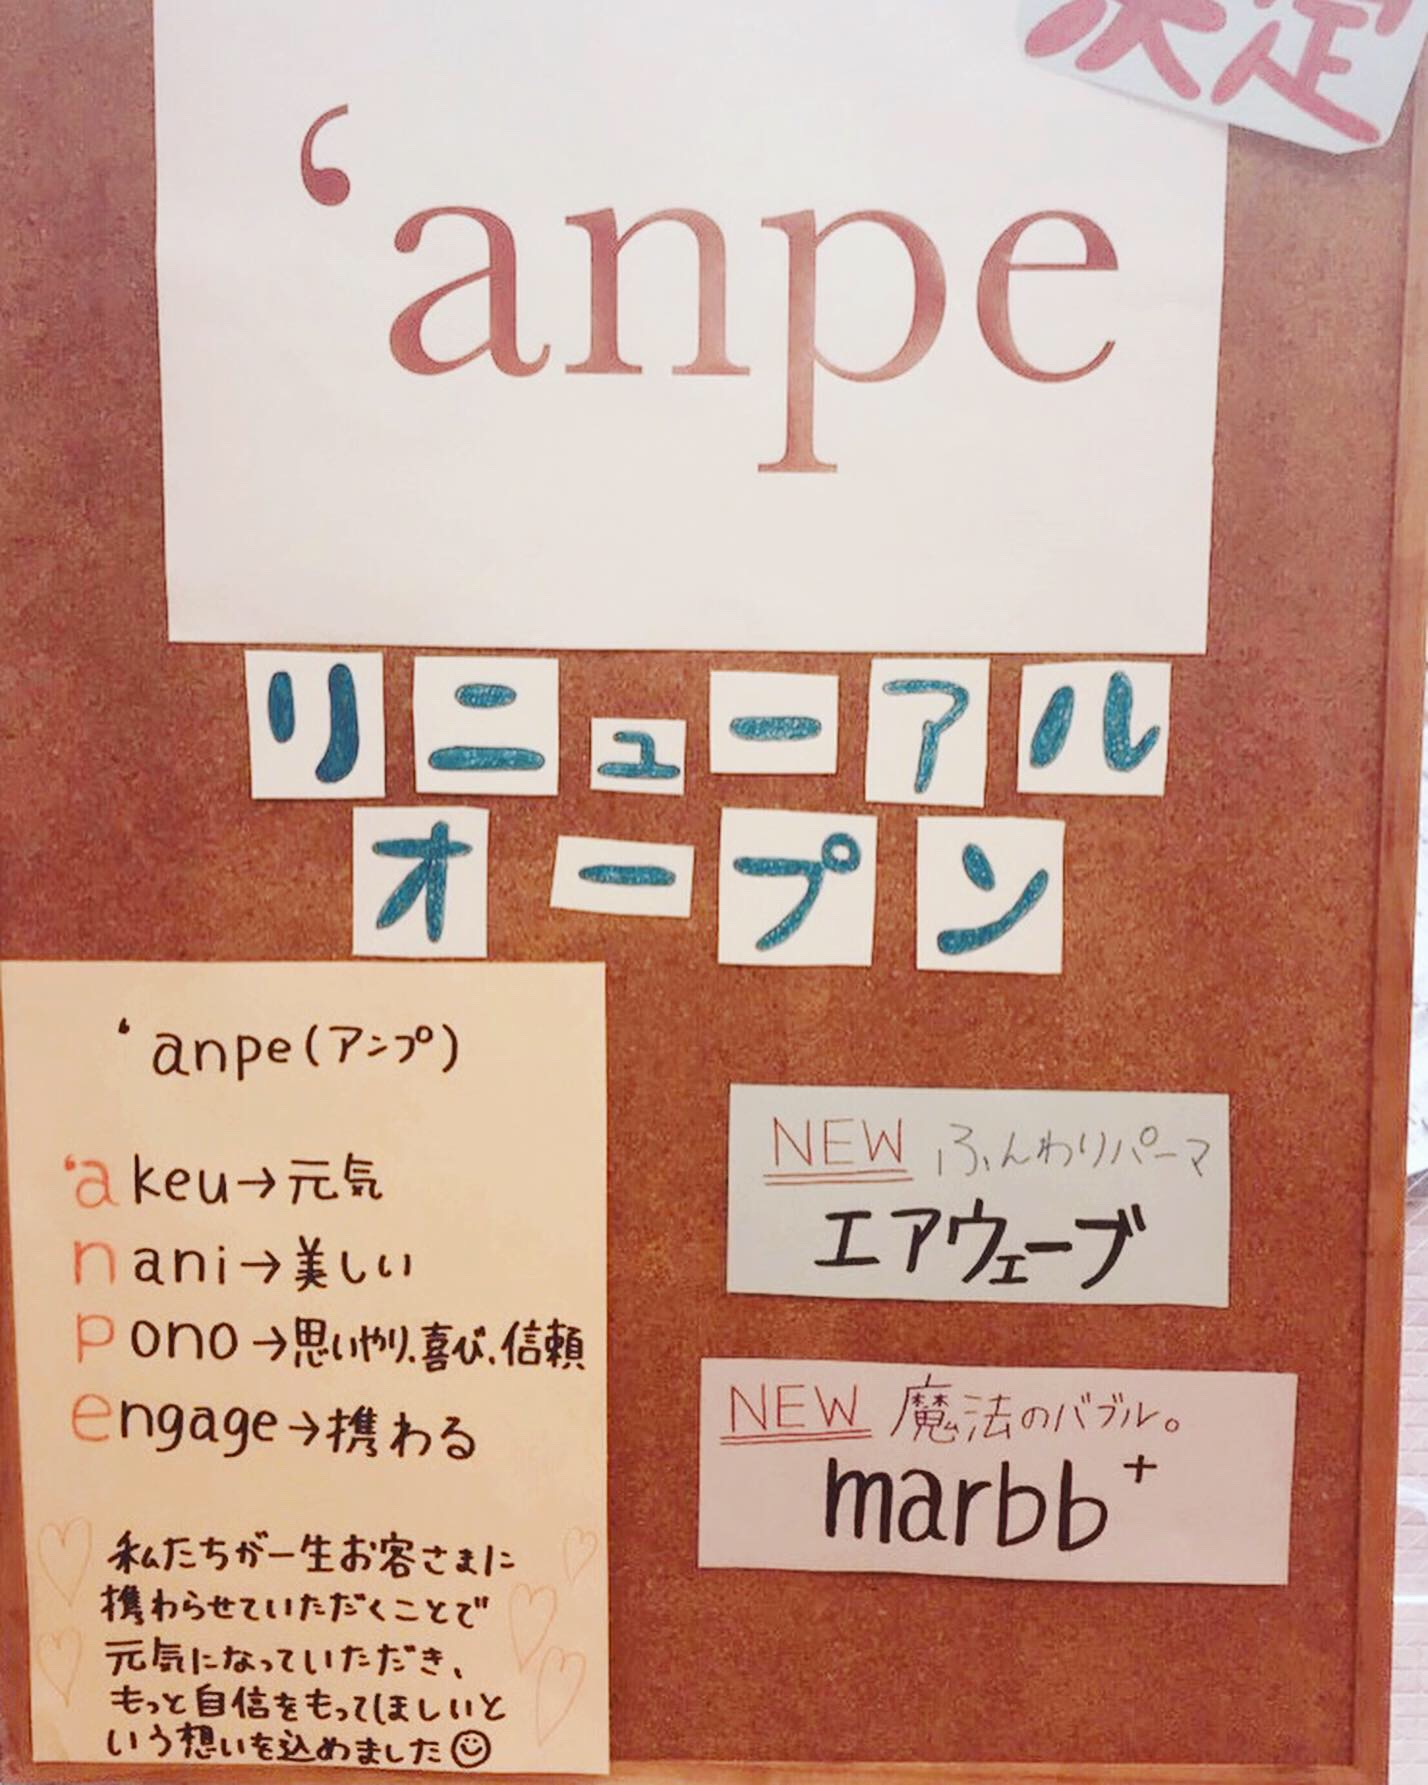 決定
‘anpe
リニューアル
オープン
‘anpe(アンプ)
‘akeu→元気
nani→美しい
pono→思いやり、喜び、信頼
engage→携わる
私たちが一生お客さまに
携わらせていただくことで
元気になっていただき、
もっと自信をもってほしいと
いう想いを込めました
NEW ふんわりパーマ
エアウェーブ
NEW 魔法のバブル。
marbb+